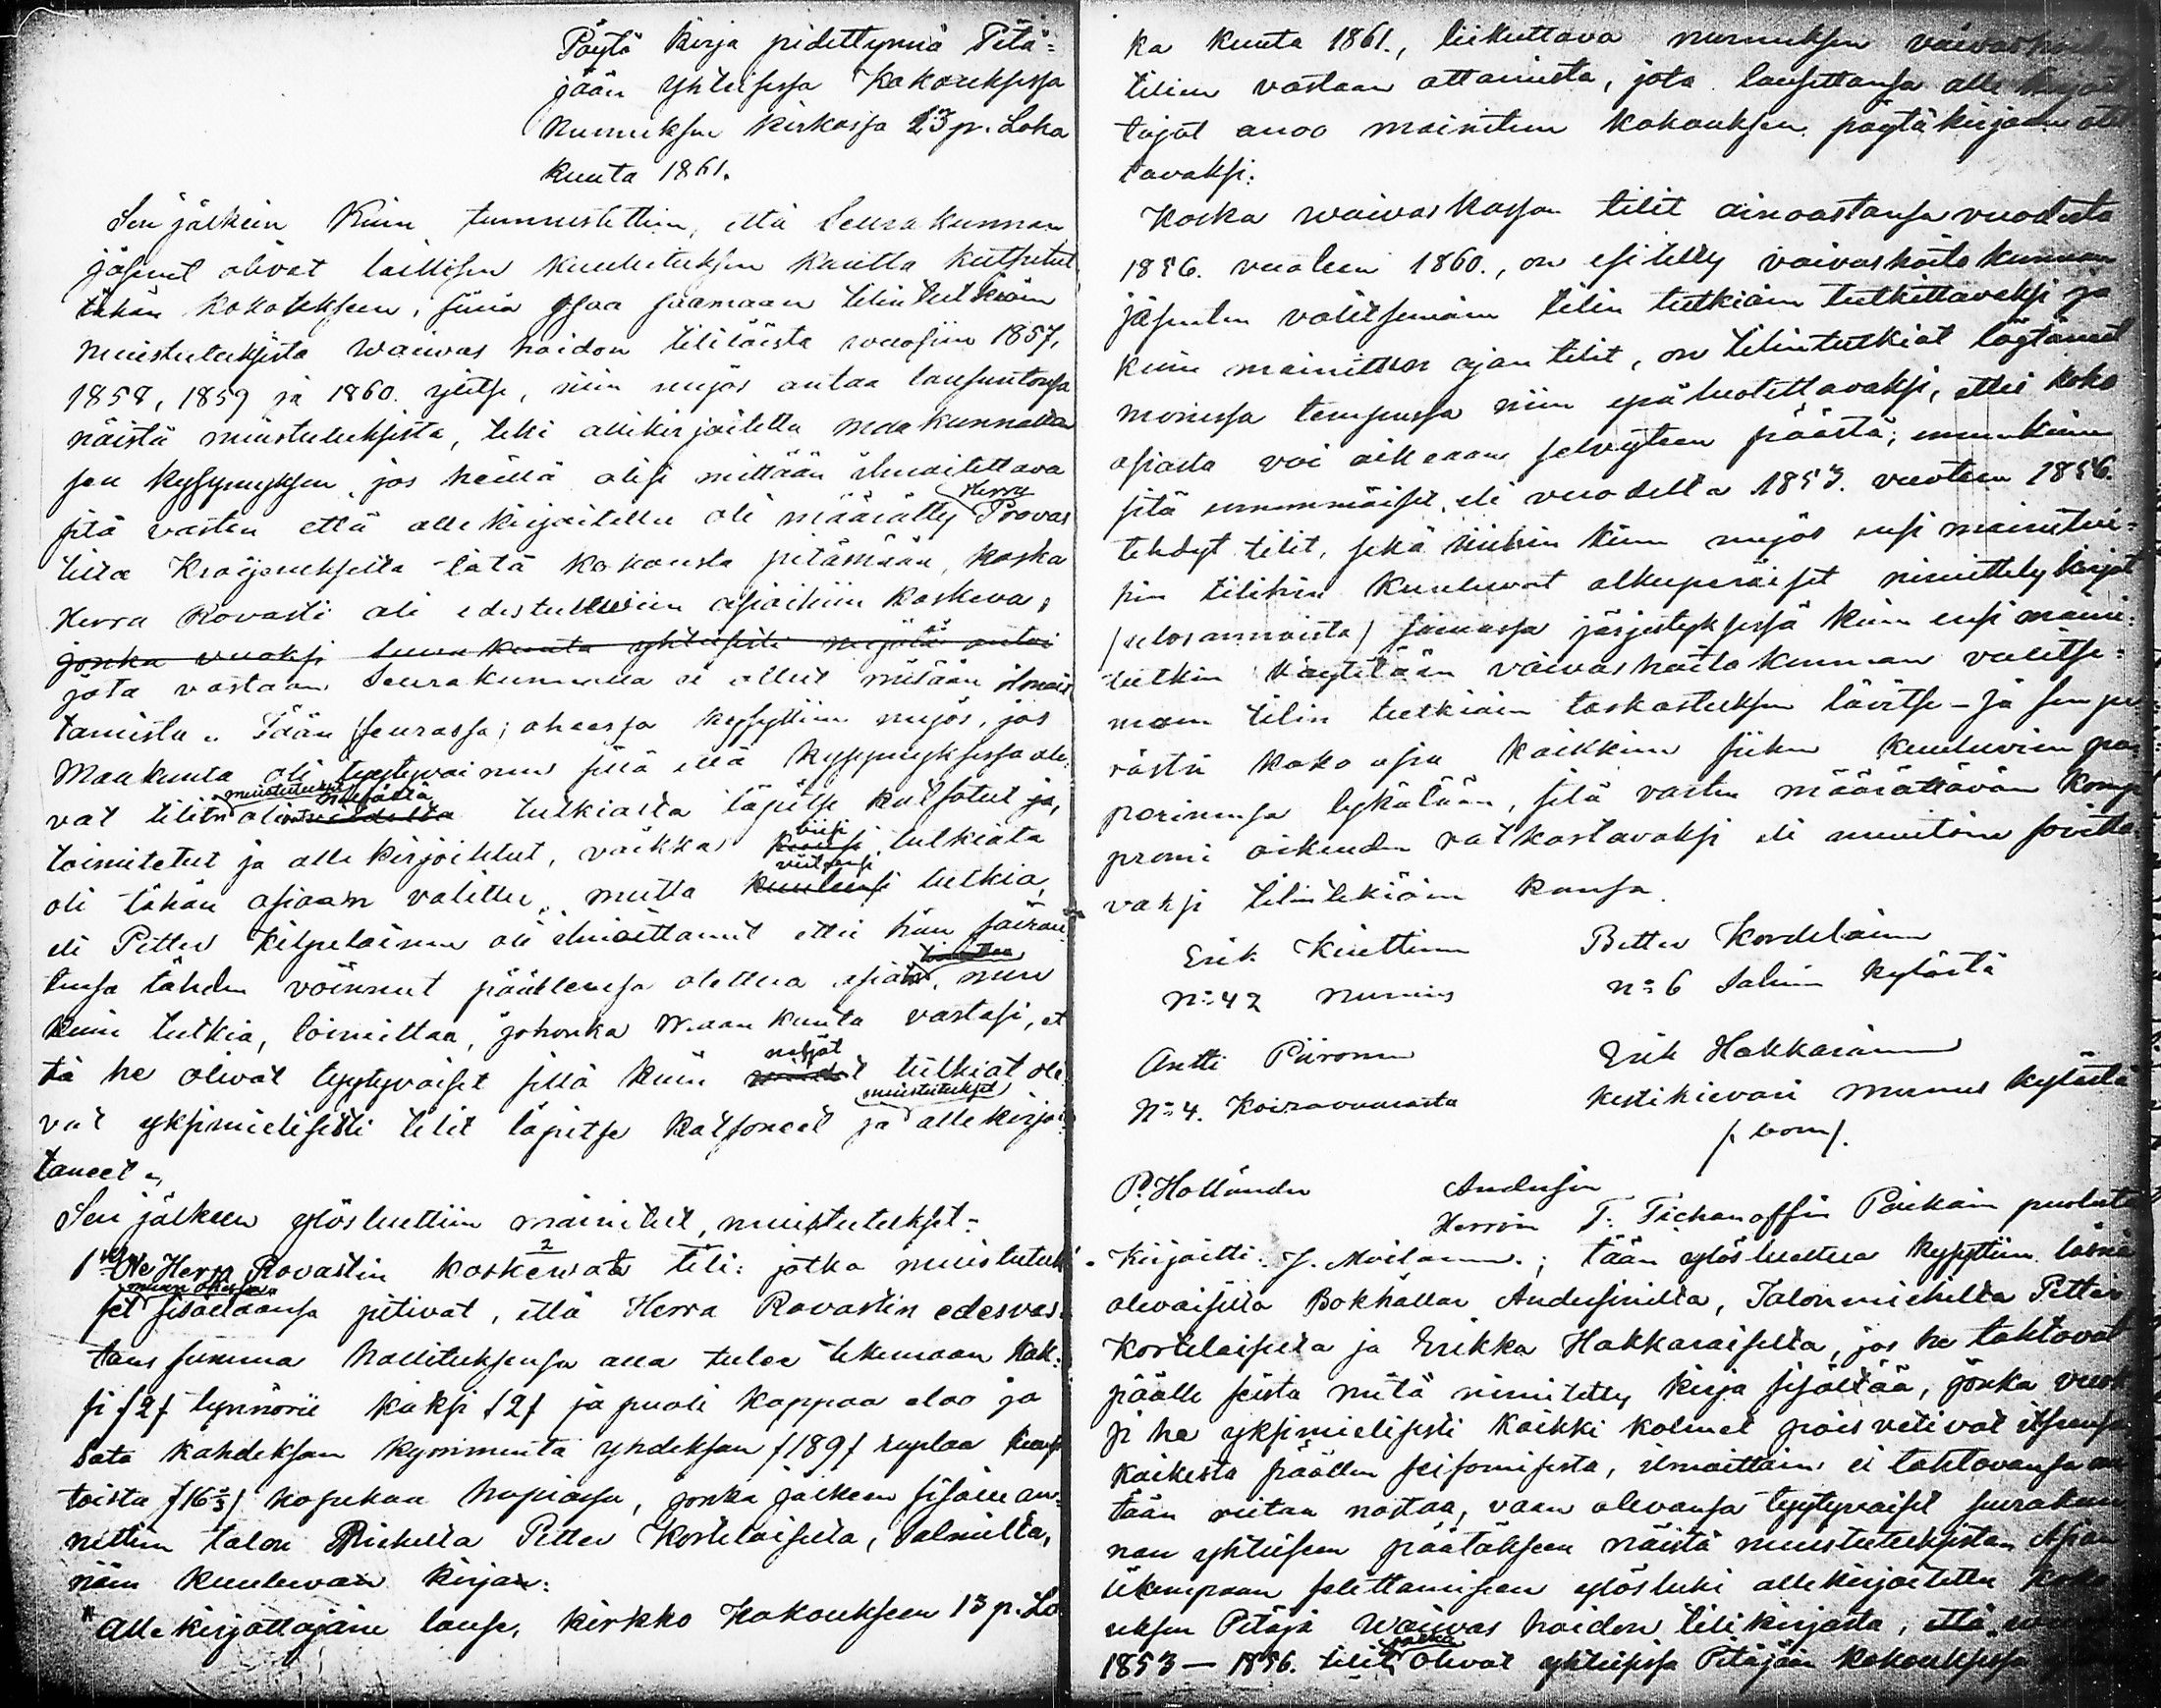 Pöytä kirja pidettynnä Pitä=
jään Yhteisessä Kokouksessa
Nurmeksen kirkossa 13 p. Loka
kuuta 1861.
Sen jälkein Kuin tunnustettiin, että Seurakunnan
jäsenet olivat laillisen kuulutuksen kautta kutsutut
tähän Kokoukseen, siinä osaa saamaan tilintutkiain
muistutuksista Waiwas hoidon tililöistä vuosiin 1857,
1858, 1859 ja 1860. ylitse, niin myös antaa lausuntonsa
näistä muistutuksista, teki allekirjoitettu maakunnalta
sen kysymyksen, jos heillä olisi mittään ilmoitettava
sitä vasten että allekirjoitettu oli määrätty Herra Provas
tilta Krogeruksilta tätä kokousta pitämään, koska
Herra Rovasti oli edestulleviin asioihin koskeva,
jonka vuoksi Seurakunta yhteisesti myötä antoi
jota vastaan Seurakunnalla ei ollut mitään ilmoit
tamista. Tään seurassa; ohessa kysyttiin myös, jos
Maakunta oli tyytyväinen sillä että kysymyksessä ole
vat tilit muistutukset olivat neljältä tutkialta läpitse katsotut ja,
toimitetut ja allekirjoitetut, vaikka viisi tutkiata
oli tähän asiaan valittu, mutta viites tutkia,
eli Petter Kilpeläinen oli ilmoittanut ettei hän sairau
tensa tähden voinnut päällensä otettua asiata, niin
kuin tutkia, toimittaa, johonka Maakunta vastasi, et
tä he olivat tyytyväiset sillä kuin neljät tutkiat oli
vat yksimielisesti tilit läpitse katsoneet ja muistutukset allekirjoit
taneet.
Sen jälkeen ylösluettiin mainitut, muistutukset=
1 Herra Rovastin koskewat tili: jotka muistutuk
set sisällänsä pitivät, että Herra Rovastin edesvas
taus summa hallituksensa alla tulee tekemään kak:
si /2/ tynnörii kaksi /2/ ja puoli kappaa eloo ja
Sata kahdeksan kymmentä yhdeksän /189/ ruplaa kuusi
toista /16 2/3/ kopekaa hopiassa, jonka jälkeen sisälle an=
nettiin talon Miehelta Petter Kortelaiselta, Salmilta,
näin kuuluwan kirjan:
Allekirjottajain lause, kirkko Kokoukseen 13 p. Lo
ka kuuta 1861., liikuttava nurmuksen vaivaskassan
tilien vastaan ottamista, jota lausettansa allekirjoit
tajat anoo mainitun kokouksen pöytäkirjaan otet
tavaksi:
Koska waivaskassan tilit ainoastansa vuodesta
1856. vuoteen 1860., on esitelty vaivashoito kunnan
jäsenten valitsemain tilin tutkiain tutkittavaksi ja
kuin mainittun ajan tilit, on tilintutkiat löytäneet
monessa tempussa niin epäluotettavaksi, ettei koko
asiasta voi oikeaan selvyteen päästä; ennenkuin
sitä ennemmäiset, eli vuodelta 1853. vuoteen 1856.
tehdyt tilit, sekä niihin kuin myös ensi mainitui=
hin tilihin kuuluvat alkuperäiset nimittelykirjat
/ulosannoista/ samassa järjestyksessä kuin ensi maini=
tutkin käytetään vaivashoitokunnan valitse=
main tilin tutkiain tarkastuksen lävitse - Ja sen pe
rästä koko asia kaikkiin siihen kuuluvien pa
perinensa lykätään, sitä varten määrättävän komp
promi oikeuden ratkastavaksi eli muutoin sovitta
vaksi tilintekiäin kansa.
Erik Kinttinen Petter Kordelainen
No 42 Nurmes No 6 Salmin kylästä
Antti Piironen Erik Hakkarainen
No 4. Koiravaarasta kestikievari Nurmes kylästä
P. Holländer Andersin
Herrin T: Tichanoffin Poikain puolesta
Kirjoitti: J. Moilanen.; tään ylösluettua kysyttiin läsnä
olevaisilta Bokhållar Andersinilta, Talonmiehilta Petter
Kortelaiselta ja Erikka Hakkaraiselta, jos he tahtovat
päälle seista mitä nimitetty kirja sisältää, jonka vuok
si he yksimielisesti kaikki kolmet pois vetivät itsensä
kaikesta päällen seisomisesta, ilmoittain ei tahtovansa
tään riitaa nostaa, vaan olevansa tyytyväiset seurakun
nan yhteiseen päätökseen näistä muistutuksista. Asian
likempään selittämiseen ylösluki allekirjoitettu koko
uksen Pitäjä Waiwas hoidon tilikirjasta, että
1853 — 1856. tilit olivat yhteisessä Pitäjään kokouksessa